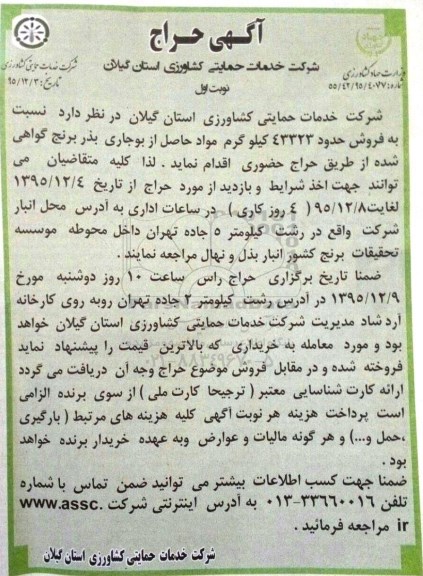 آگهی حراج
شرکت خدمات حمایتی کشاورزی استان گیلان
نوبت اول
وزارت جهاد کشاورزی
شماره: ۵۵/۴۲/۹۵/۴۰۷۷
شرکت خدمات حمایتی کشاورزی
تاریخ: ۹۵/۱۲/۳
شرکت خدمات حمایتی کشاورزی استان گیلان در نظر دارد نسبت
به فروش حدود ۴۳۳۲۳ کیلو گرم مواد حاصل از بوجاری بذر برنج گواهی
شده از طریق حراج حضوری اقدام نماید . لذا کلیه متقاضیان می
توانند جهت اخذ شرایط و بازدید از مورد حراج از تاریخ ۱۳۹۵/۱۲/۴
لغایت۹۵/۱۲/۸ ( ۴ روز کاری ) در ساعات اداری به آدرس محل انبار
شرکت واقع در رشت کیلومتر ۵ جاده تهران داخل محوطه موسسه
تحقیقات برنج کشور انبار بذل و نهال مراجعه نمایند .
ضمنا تاریخ برگزاری حراج راس ساعت ۱۰ روز دوشنبه مورخ
۱۳۹۵/۱۲/۹ در آدرس رشت کیلومتر ۲ جاده تهران روبه روی کارخانه
آرد شاد مدیریت شرکت خدمات حمایتی کشاورزی استان گیلان خواهد
بود و مورد معامله به خریداری که بالاترین قیمت را پیشنهاد نماید
فروخته شده و در مقابل فروش موضوع حراج وجه آن دریافت می گردد
ارائه کارت شناسایی معتبر ( ترجیحا کارت ملی ) از سوی برنده الزامی
است پرداخت هزینه هر نوبت آگهی کلیه هزینه های مرتبط ( بارگیری
،حمل و...) و هر گونه مالیات و عوارض وبه عهده خریدار برنده خواهد
بود .
ضمنا جهت کسب اطلاعات بیشتر می توانید ضمن تماس با شماره
تلفن ۳۳۶۶۰۰۱۶-۰۱۳ به آدرس اینترنتی شرکت www.assc.
ir مراجعه فرمائید .
شرکت خدمات حمایتی کشاورزی استان گیلان